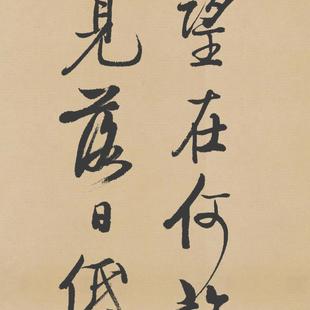 望在何
見落日低